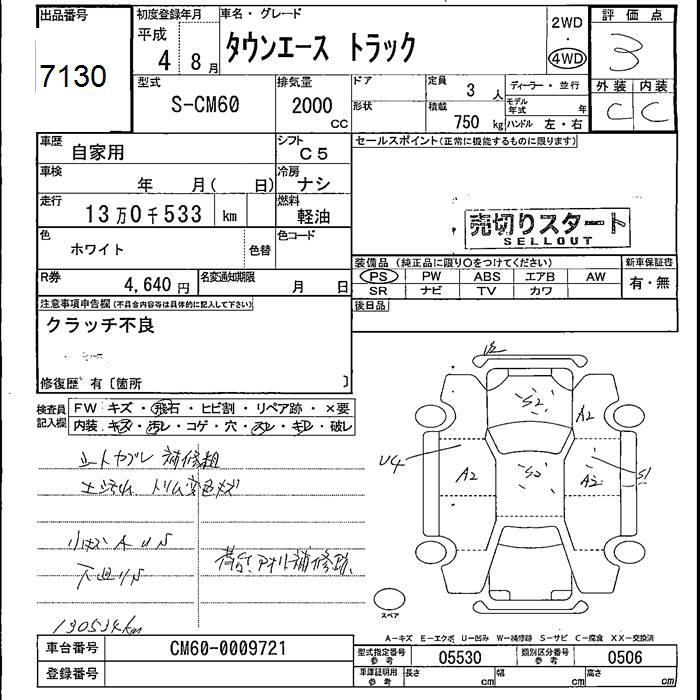 出品番号 7130
初度登録年月 平成 4年 8月
車名・グレード タウンエース トラック
2WD・4WD
評価点 3
外装 C 内装 C
型式 S-CM60
排気量 2000 CC
ドア 形状
定員 3人
積載 750 kg
ディーラー・並行
モデル年式 年
ハンドル 左・右
車歴 自家用
シフト C5
セールスポイント(正常に機能するものに限ります)
車検 年 月( 日)
冷房 ナシ
走行 13万0千533 km
燃料 軽油
売切りスタート
SELLOUT
色 ホワイト 色替
色コード
装備品(純正品に限り○をつけてください)
新車保証書 有・無
R券 4,640円
名変通知期限 月 日
PS PW ABS エアB AW
SR ナビ TV カワ
注意事項申告欄(不具合内容等は具体的に記入して下さい)
後日品
クラッチ不良
修復歴 有〔箇所 〕
検査員記入欄
FW キズ・飛石・ヒビ割・リペア跡・×要
内装・キズ・汚レ・コゲ・穴・スレ・キレ・破レ
シートヤブレ 補修粗
トリム変色キズ
小キズ A U S
下廻りS
荷台アオリ補修跡
130534km
S2
A2
U4
A2
A2
S1
スペア
A-キズ E-エクボ U-凹み W-補修跡 S-サビ C-腐食 XX-交換済
車台番号 CM60-0009721
型式指定番号 参考 05530
類別区分番号 参考 0506
登録番号
車庫証明用 参考 長さ cm 幅 cm 高さ cm